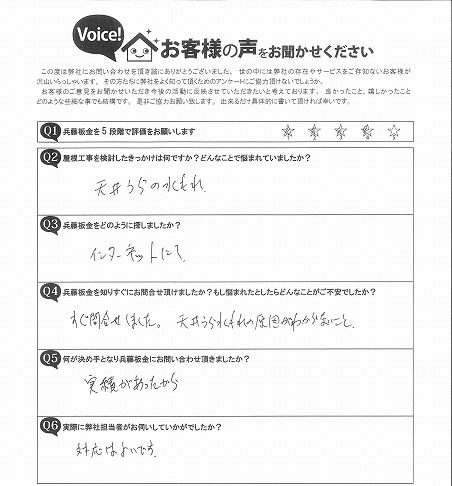 Voice!
お客様の声をお聞かせください
この度は弊社にお問い合わせを頂き誠にありがとうございました。 世の中には弊社の存在やサービスをご存知ないお客様が
沢山いらっしゃいます。 その方たちに弊社をよく知って頂くためのアンケートにご協力頂けないでしょうか。
お客様のご意見をお聞かせいただき今後の活動に反映させていただきたいと考えております。 良かったこと、嬉しかったこと
どのような些細な事でも結構です。 是非ご協力お願い致します。 出来るだけ具体的に書いて頂ければ幸いです。
Q1 兵藤板金を5段階で評価をお願いします ☆ ☆ ☆ ☆ ☆
Q2 屋根工事を検討したきっかけは何ですか?どんなことで悩まれていましたか?
天井うらの水もれ
Q3 兵藤板金をどのように探しましたか?
インターネットにて
Q4 兵藤板金を知りすぐにお問合せ頂けましたか?もし悩まれたとしたらどんなことがご不安でしたか?
すぐ問合せしました。 天井うら水もれの原因がわからないこと、
Q5 何が決め手となり兵藤板金にお問い合わせ頂きましたか?
実績があったから
Q6 実際に弊社担当者がお伺いしていかがでしたか?
対応はよいです。